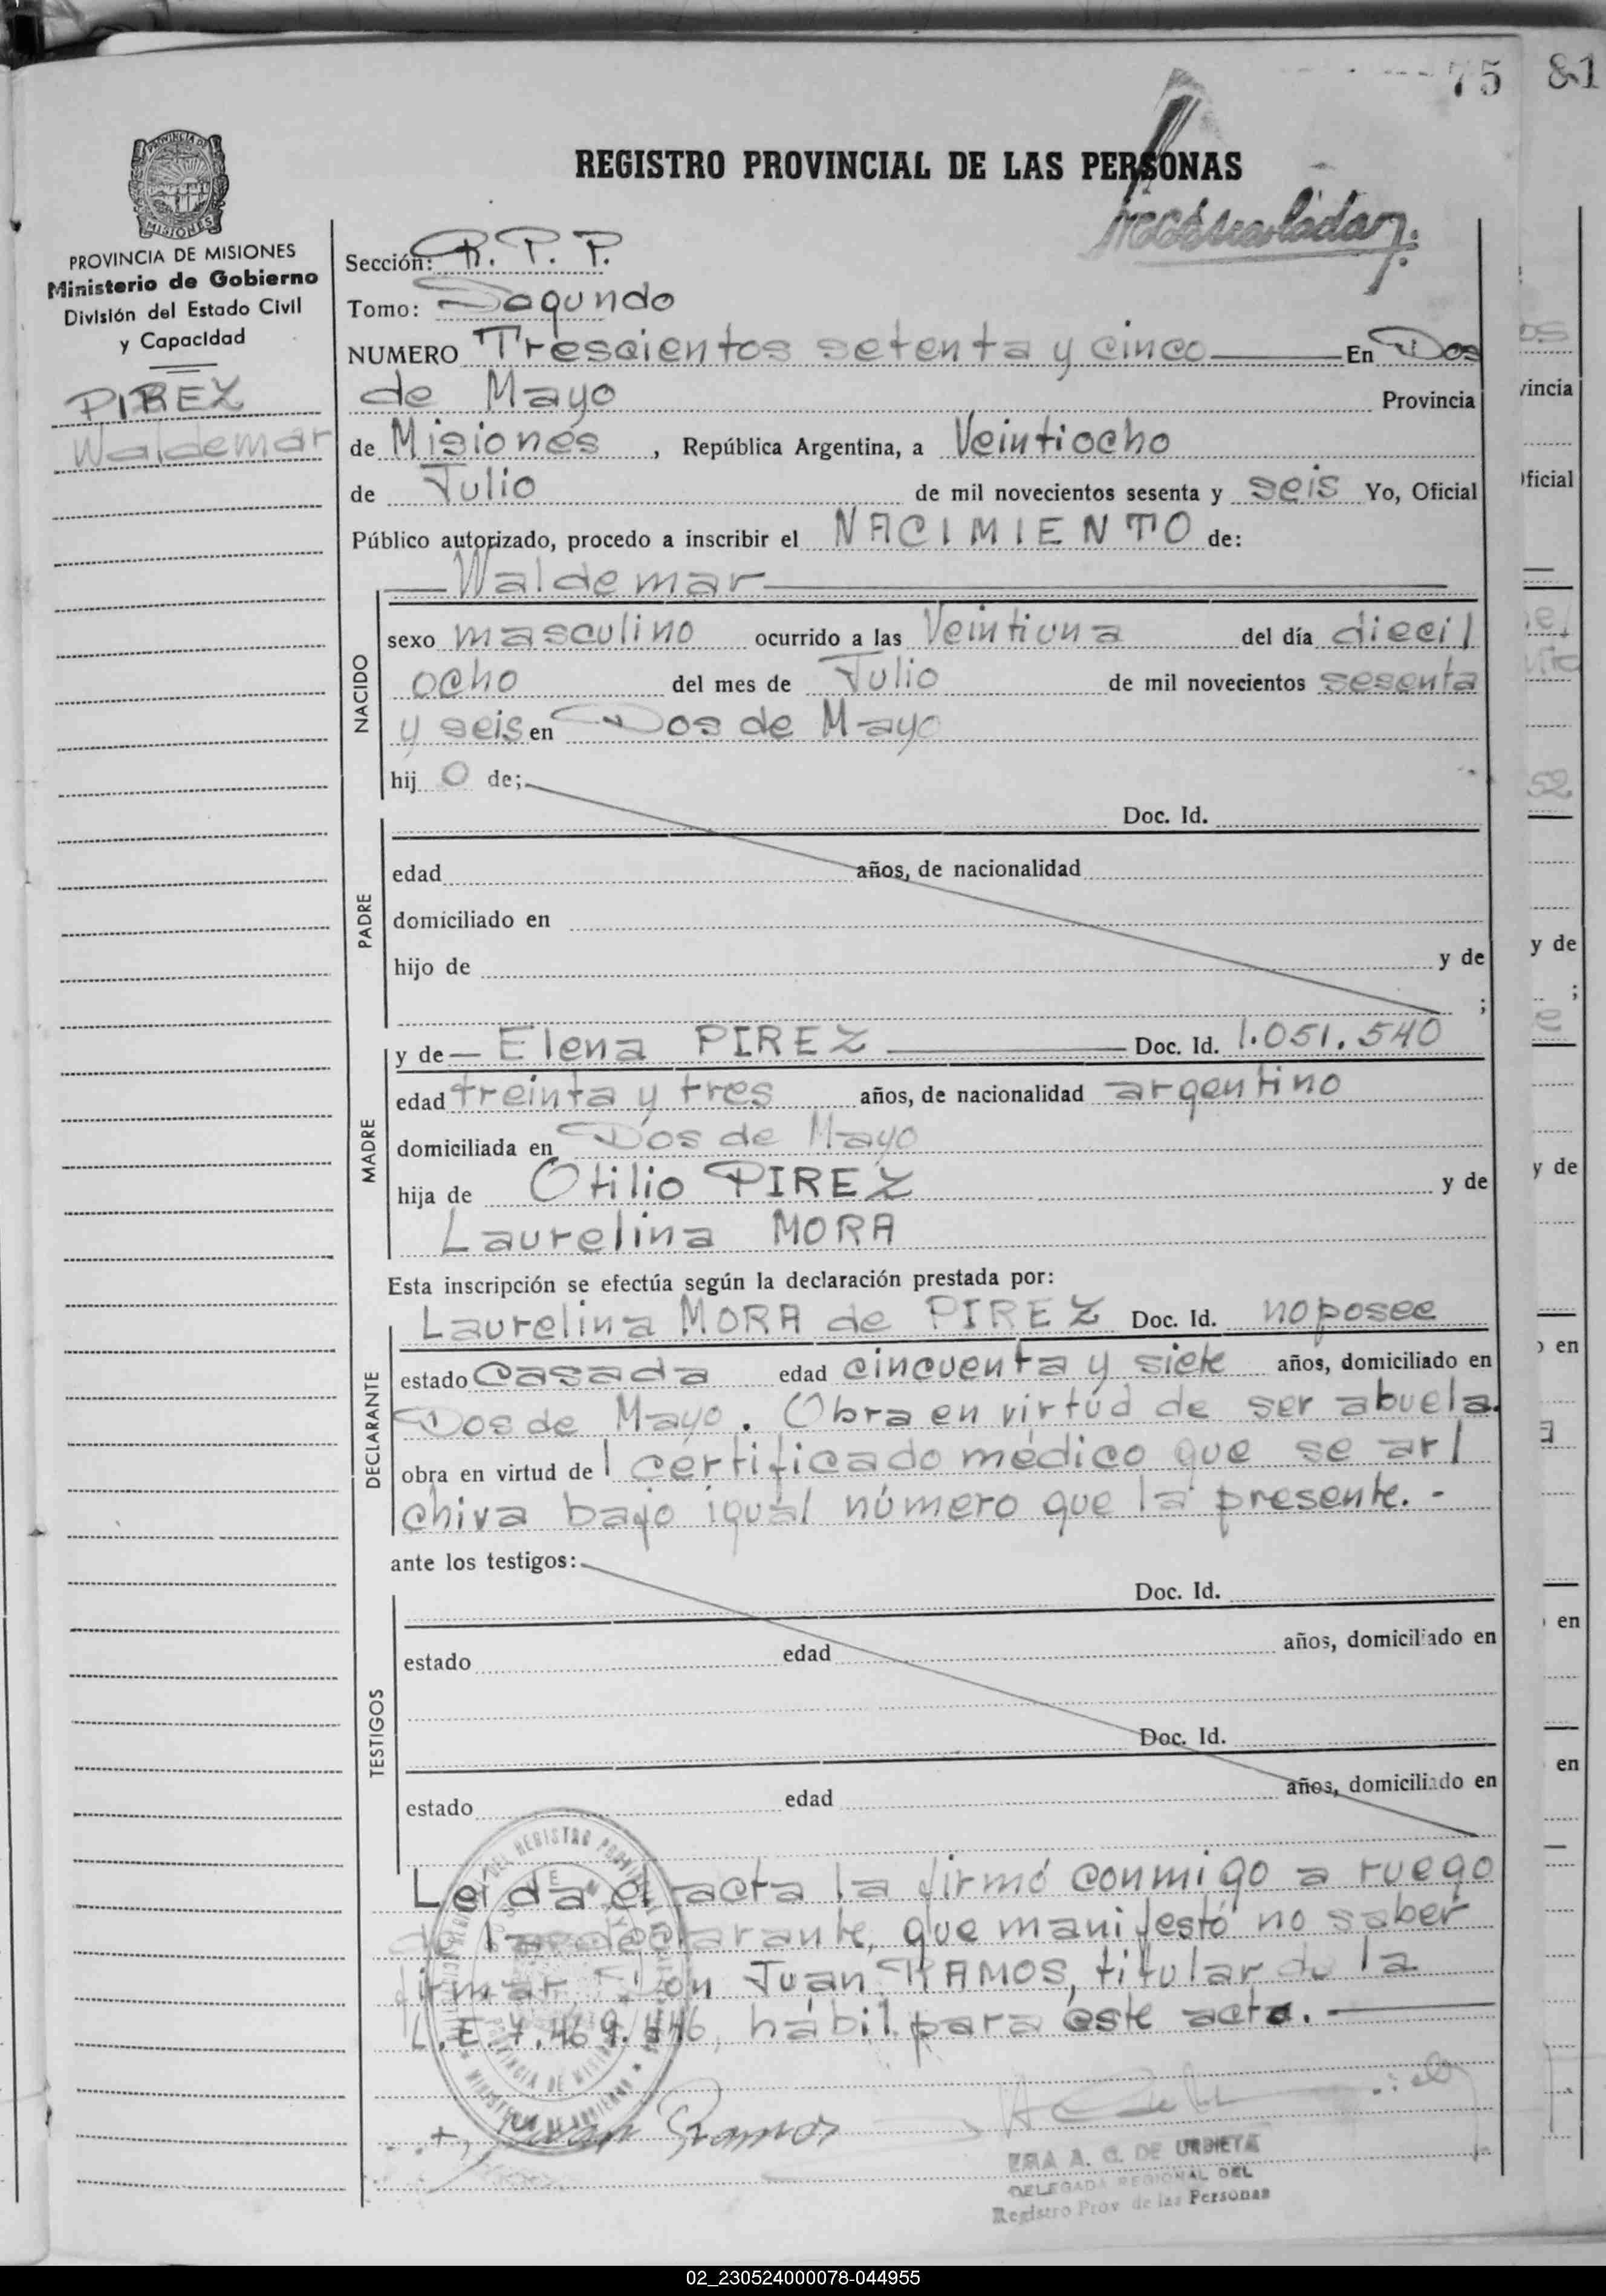 75 81
REGISTRO PROVINCIAL DE LAS PERSONAS
PROVINCIA DE
MISIONES
PROVINCIA DE MISIONES
Ministerio de Gobierno
División del Estado Civil
y Capacidad
PIREZ
Waldemar
Sección: R. P. P.
Tomo: Segundo
NUMERO Trescientos setenta y cinco En Dos
de Mayo Provincia
de Misiones , República Argentina, a Veintiocho
de Julio de mil novecientos sesenta y seis Yo, Oficial
Público autorizado, procedo a inscribir el NACIMIENTO de:
Waldemar
NACIDO
sexo masculino ocurrido a las Veintiuna del día dieci/
ocho del mes de Julio de mil novecientos sesenta
y seis en Dos de Mayo
hij o de;
PADRE
Doc. Id.
edad años, de nacionalidad
domiciliado en
hijo de y de
;
MADRE
y de Elena PIREZ Doc. Id. 1.051.540
edad treinta y tres años, de nacionalidad argentino
domiciliada en Dos de Mayo
hija de Otilio PIREZ y de
Laurelina MORA
Esta inscripción se efectúa según la declaración prestada por:
DECLARANTE
Laurelina MORA de PIREZ Doc. Id. no posee
estado casada edad cincuenta y siete años, domiciliado en
Dos de Mayo. Obra en virtud de ser abuela.
obra en virtud de 1 certificado médico que se ar/
chiva bajo igual número que la presente. -
ante los testigos:
TESTIGOS
Doc. Id.
estado edad años, domiciliado en
Doc. Id.
estado edad años, domiciliado en
Leída el acta la firmó conmigo a ruego
de la declarante, que manifestó no saber
firmar Don Juan RAMOS, titular de la
L.E. 7.469.446, hábil para éste acto.
Juan Ramos
A. C. DE URBIETA
DELEGADA REGIONAL DEL
Registro Prov de las Personas
02_230524000078-044955